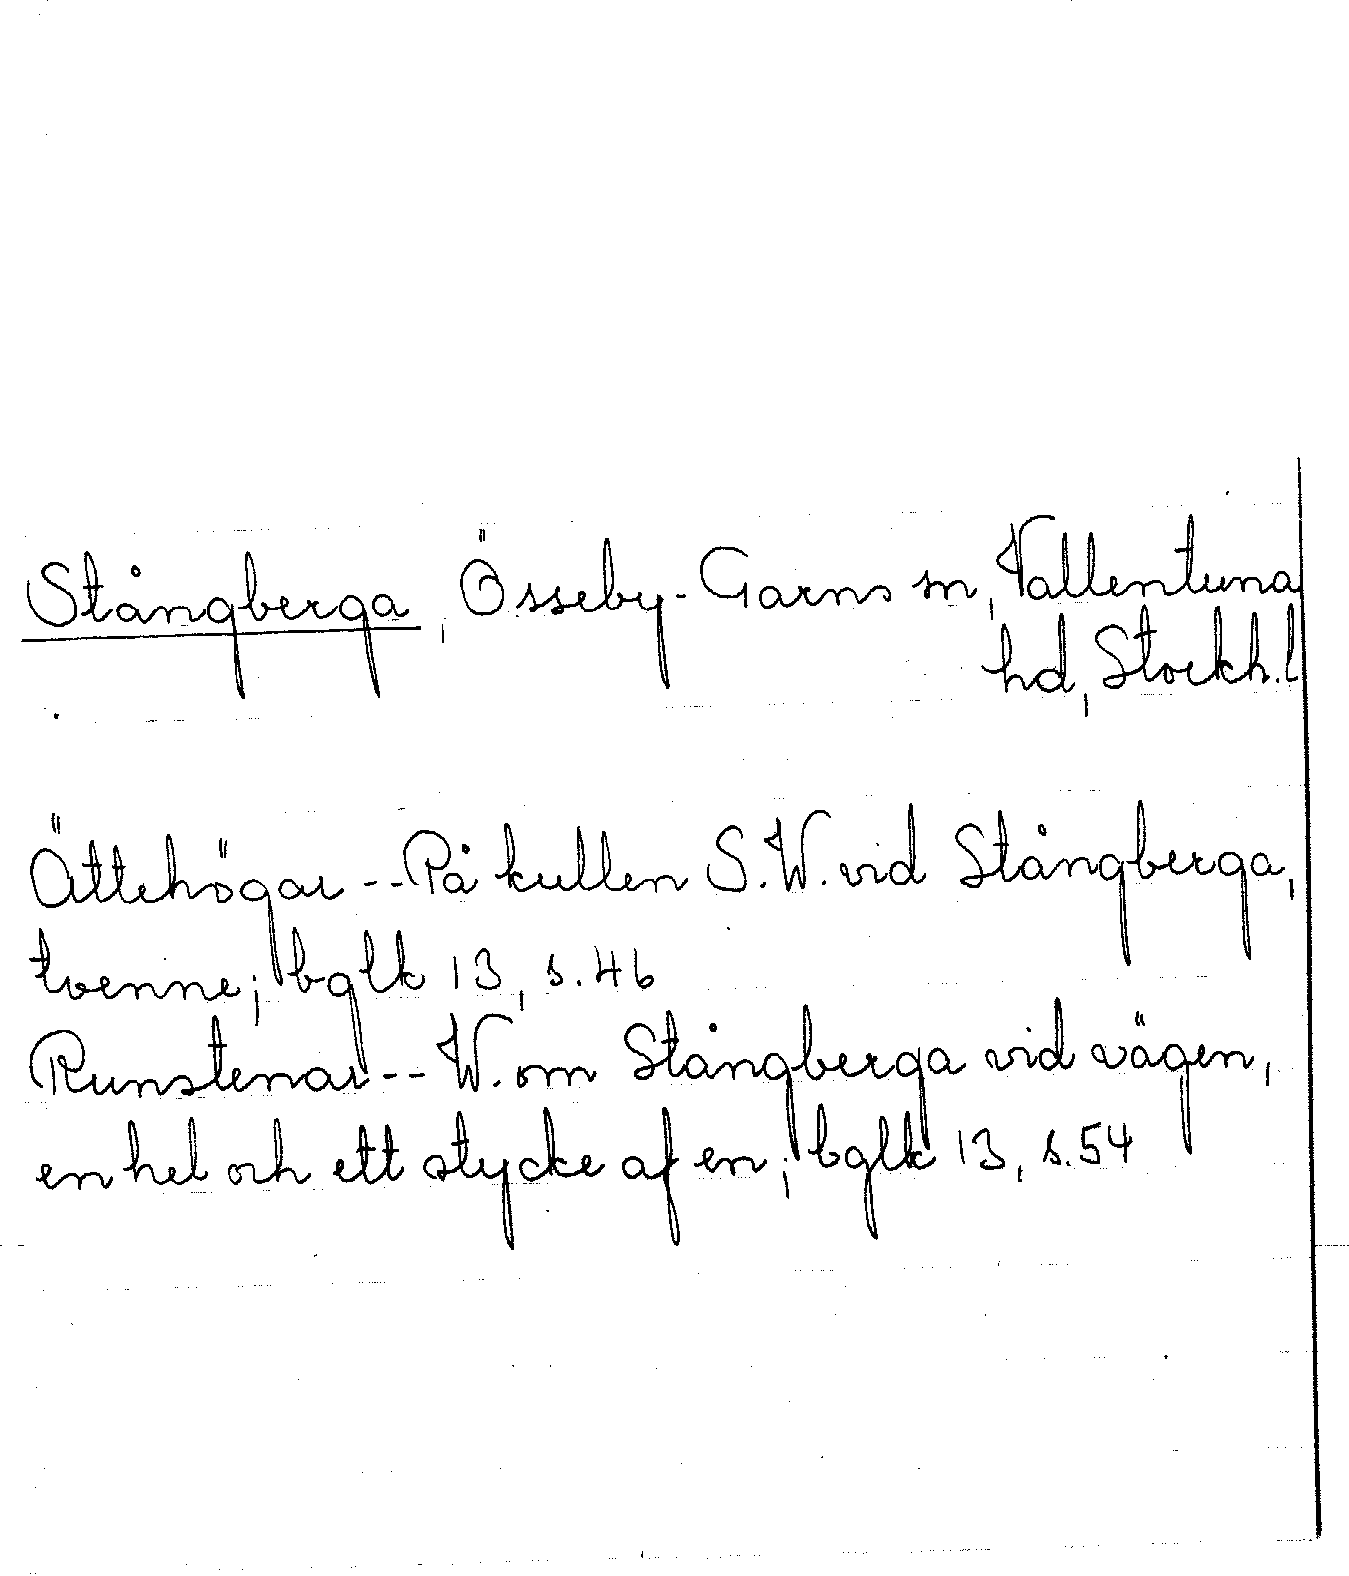 Stångberga, Össeby-Garns sn, Vallentuna
hd, Stockh.l
Ättehögar -- På kullen S.W. vid Stångberga,
tvenne; bglk 13, s.46
Runstenar -- W. om Stångberga vid vägen,
en hel och ett stycke af en; bglk 13, s.54